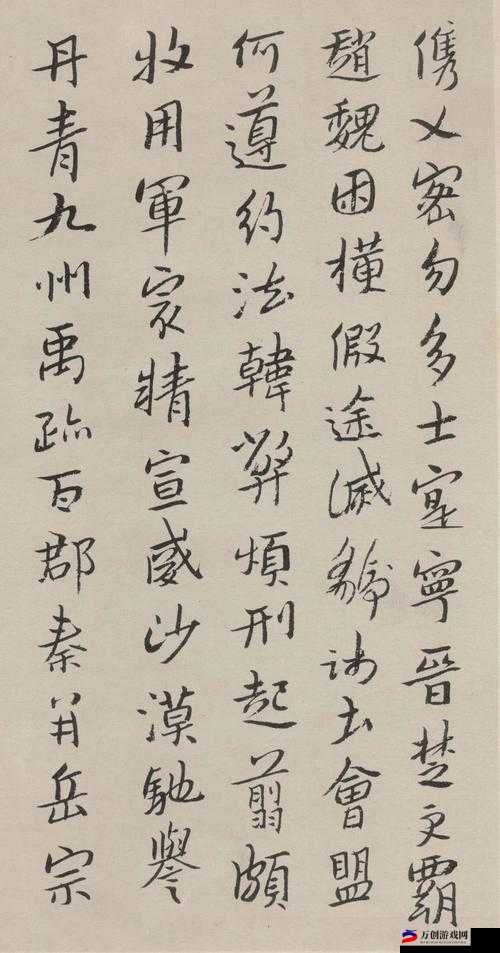 儁乂密勿多士寔寧晉楚更霸
趙魏困橫假途滅虢踐土會盟
何遵約法韓弊煩刑起翦頗
牧用軍最精宣威沙漠馳譽
丹青九州禹跡百郡秦并岳宗
万创游戏网